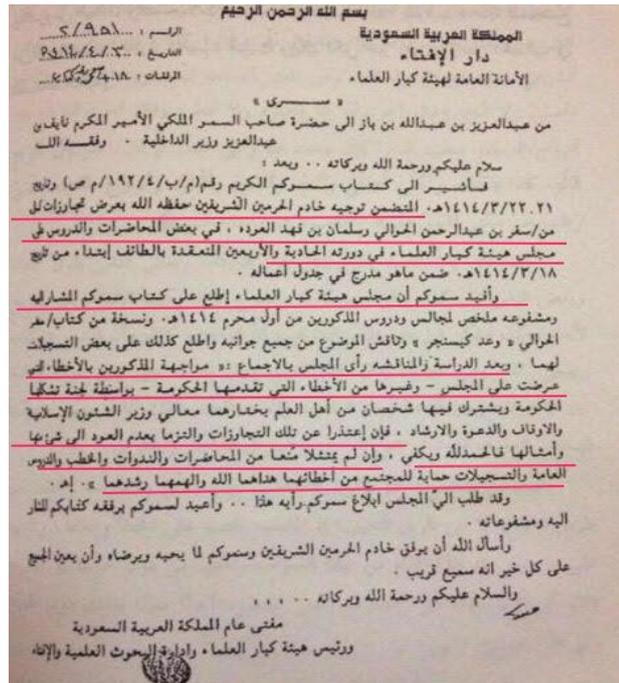 بسم الله الرحمن الرحيم
المملكة العربية السعودية
دار الإفتاء
الأمانة العامة لهيئة كبار العلماء
الرقم : ٢/٩٥١
التاريخ : ١٤١٤/٤/٣
المرفقات :
« سـري »
من عبدالعزيز بن عبدالله بن باز الى حضرة صاحب السمو الملكي الأمير المكرم نايف بن
عبدالعزيز وزير الداخلية . وفقـه اللـه
سلام عليكم ورحمة الله وبركاته . . وبعد :
فـأشـير الى كـتـاب سـمـوكـم الكـريم رقـم (م/ب/١٩٢/٤/م ص) وتاريخ
٢١.٢٢/٣/١٤١٤هـ. المتضمن توجيه خادم الحرمين الشريفين حفظه الله بعرض تجاوزات كل
من/سفر بن عبدالرحمن الحوالي وسلمان بن فهد العوده . في بعض المحاضرات والدروس على
مجلس هيـئـة كـبـار العلمـاء في دورته الحادية والأربعين المنعقدة بالطائف إبتداء من تاريخ
١٤١٤/٣/١٨هـ. ضمن ماهو مدرج في جدول أعماله .
وأفيـد سمـوكم أن مـجلس هيـئـة كبـار العلمـاء إطلع على كـتـاب سموكم المشاراليه
ومشفوعـه ملخص لمجالس ودروس المذكورين من أول محرم ١٤١٤هـ ونسخة من كتاب/سفر
الحوالي « وعد كيسنجر » وناقش الموضوع من جميع جوانبه واطلع كذلك على بعض التسجيلات
لهما . وبعد الدراسة والمناقشه رأى المجلس بالاجماع :« مـواجـهـة المذكورين بالأخطاء التي
عـرضت على المجلس - وغـيـرهـا من الأخطاء التي تقـدمـهـا الحكومـة - بواسطة لجنة تشكلها
الحكومة ويشترك فيـها شخـصـان من أهل العلم يخـتـارهـما مـعـالي وزير الشئون الإسلامية
والاوقاف والدعوة والارشاد . فإن إعتذرا عن تلك التجاوزات والتزما بعدم العود الى شيء منها
وأمثـالـهـا فالحمدلله ويكفي . وإن لم يمتثلا منعا من المحاضرات والندوات والخطب والدروس
العامة والتسجيلات حماية للمجتمع من أخطائهما هداهما الله والهمهما رشدهما » . إهـ .
وقد طلب اليّ المجلس ابلاغ سموكم رأيه هذا . . وأعيـد لسمـوكم برفقه كتابكم المشار
اليه ومشفوعاته .
وأسأل الله أن يوفق خادم الحرمين الشريفين وسموكم لما يحبه ويرضاه وأن يعين الجميع
على كل خير انه سميع قريب .
والسلام عليكم ورحمة الله وبركاته . . . . .
مفتي عام المملكة العربية السعودية
ورئيس هيئة كبار العلماء وإدارة البحوث العلمية والإفتاء